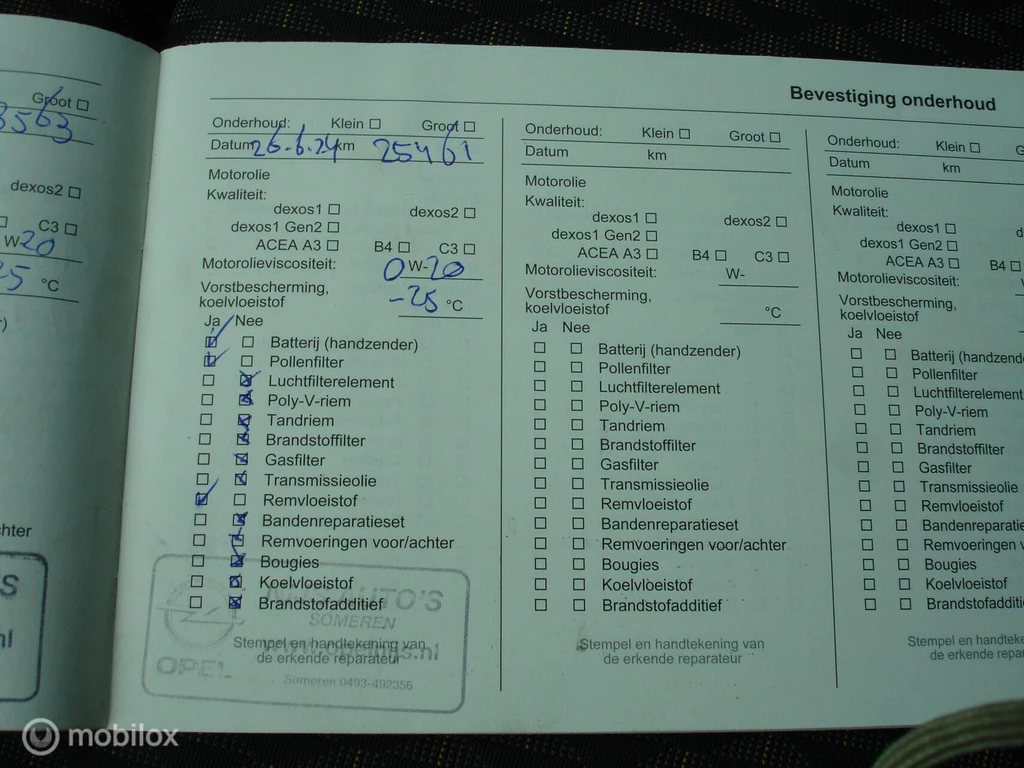 Bevestiging onderhoud
Groot ☐
3563
dexos2 ☐
C3 ☐
W-20
25 °C
chter
S
nl
Onderhoud: Klein ☐ Groot ☐
Datum 26.6.24 km 25461
Motorolie
Kwaliteit:
dexos1 ☐ dexos2 ☐
dexos1 Gen2 ☐
ACEA A3 ☐ B4 ☐ C3 ☐
Motorolieviscositeit: 0 W-20
Vorstbescherming,
koelvloeistof -25 °C
Ja Nee
Batterij (handzender)
Pollenfilter
Luchtfilterelement
Poly-V-riem
Tandriem
Brandstoffilter
Gasfilter
Transmissieolie
Remvloeistof
Bandenreparatieset
Remvoeringen voor/achter
Bougies
Koelvloeistof
Brandstofadditief
AUTO'S
SOMEREN
Stempel en handtekening van
de erkende reparateur
OPEL
Someren 0493-492356
Onderhoud: Klein ☐ Groot ☐
Datum km
Motorolie
Kwaliteit:
dexos1 ☐ dexos2 ☐
dexos1 Gen2 ☐
ACEA A3 ☐ B4 ☐ C3 ☐
Motorolieviscositeit: W-
Vorstbescherming,
koelvloeistof °C
Ja Nee
Batterij (handzender)
Pollenfilter
Luchtfilterelement
Poly-V-riem
Tandriem
Brandstoffilter
Gasfilter
Transmissieolie
Remvloeistof
Bandenreparatieset
Remvoeringen voor/achter
Bougies
Koelvloeistof
Brandstofadditief
Stempel en handtekening van
de erkende reparateur
Onderhoud: Klein ☐ G
Datum km
Motorolie
Kwaliteit:
dexos1 ☐ d
dexos1 Gen2 ☐
ACEA A3 ☐ B4 ☐
Motorolieviscositeit:
Vorstbescherming,
koelvloeistof
Ja Nee
Batterij (handzende
Pollenfilter
Luchtfilterelement
Poly-V-riem
Tandriem
Brandstoffilter
Gasfilter
Transmissieolie
Remvloeistof
Bandenreparatie
Remvoeringen v
Bougies
Koelvloeistof
Brandstofadditi
Stempel en handteke
de erkende repara
mobilox